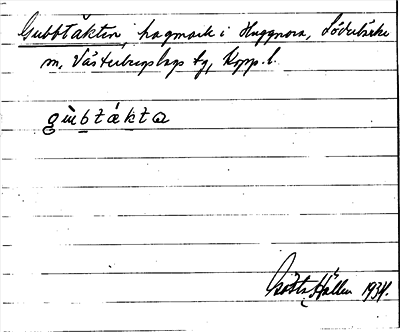 Gubbtäkten, hagmark i Haggnora, Söderbärke
sn, Västerbergslags tg, Kopp. l.
gùbtákta
Gösta Hallin 1934.